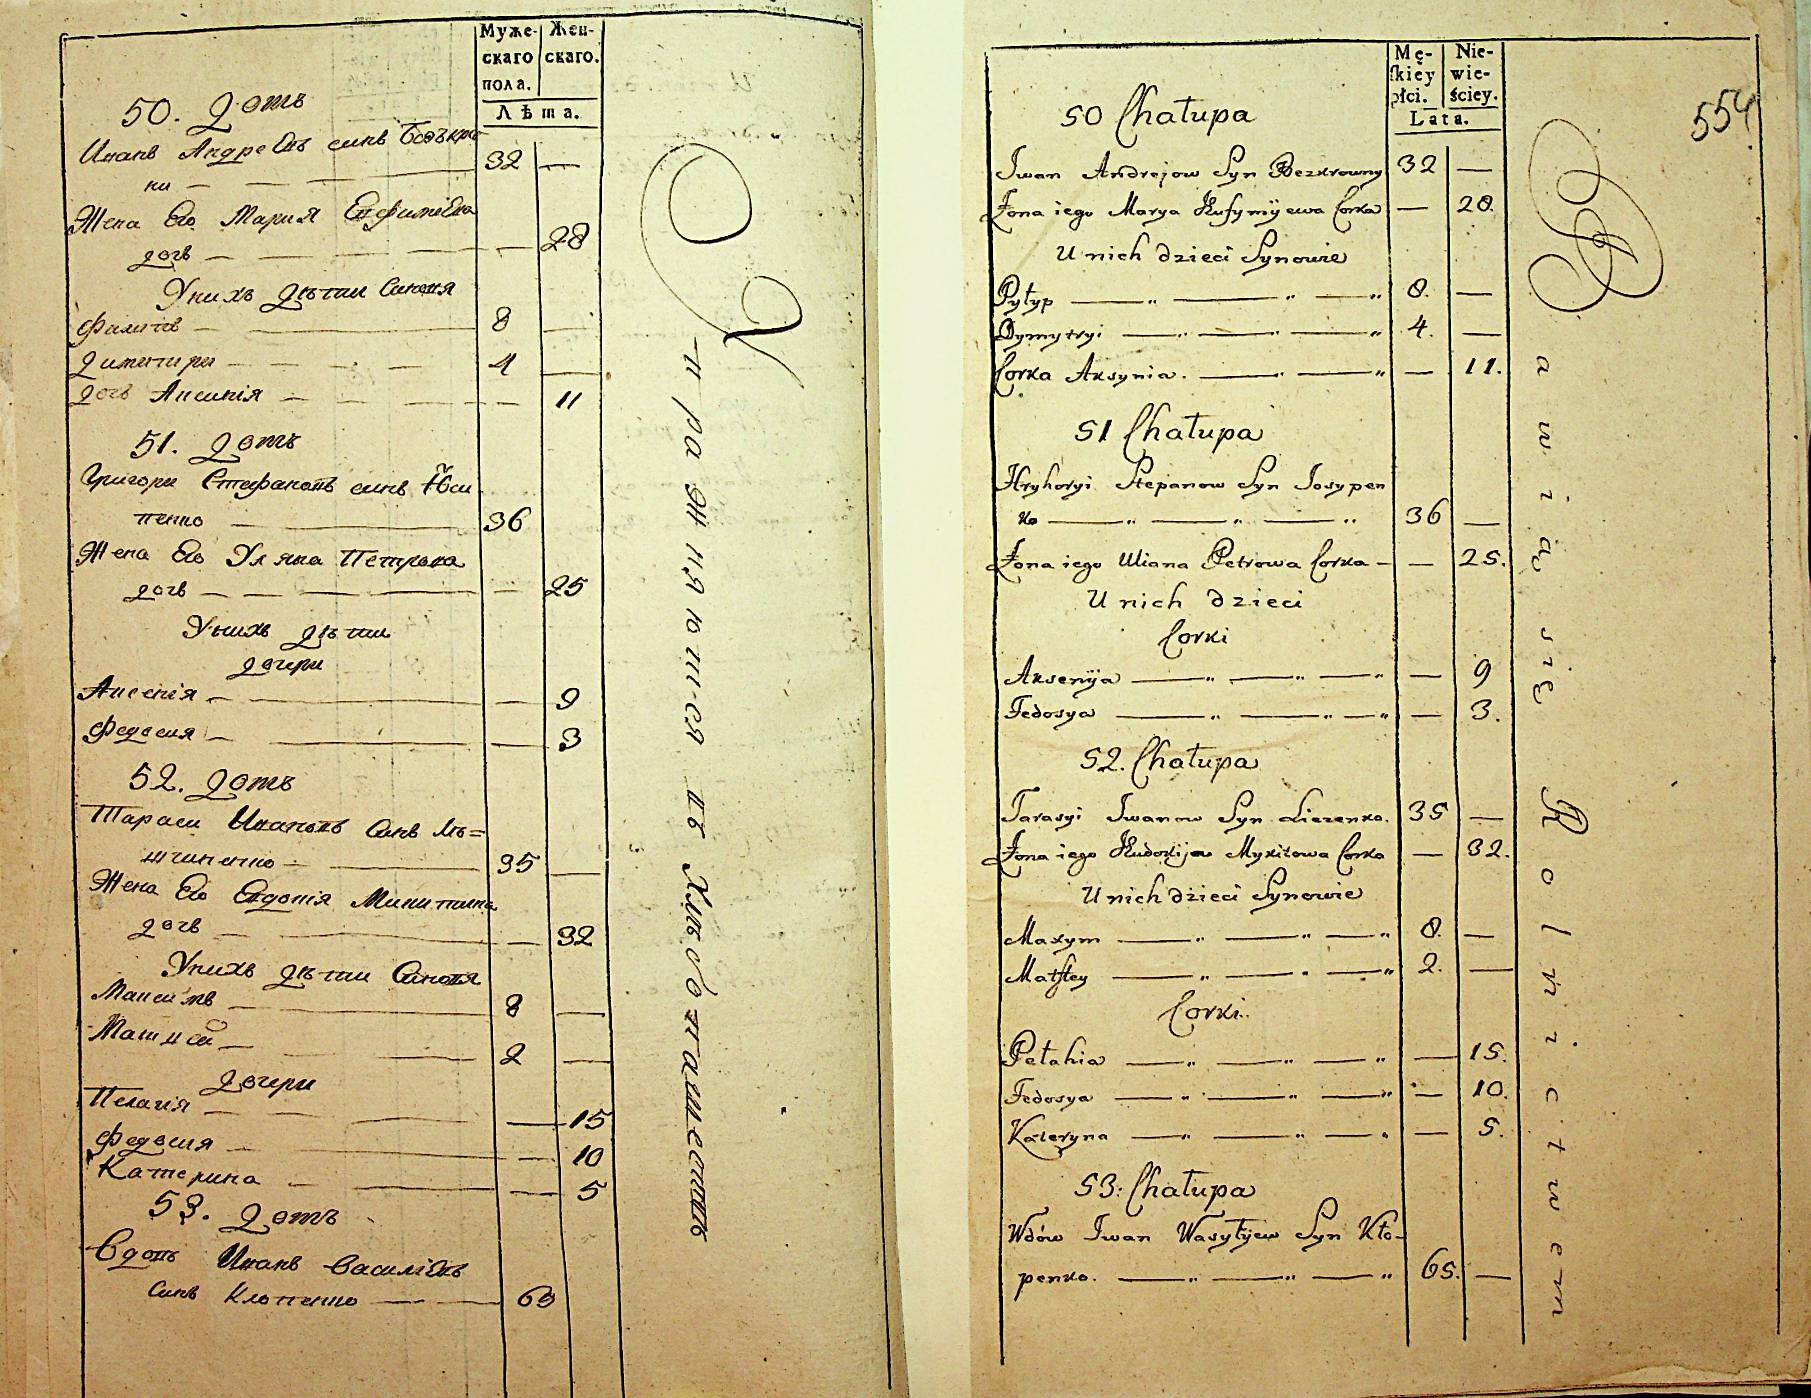 Муже-
скаго
пола.
Жен-
скаго.
Лѣта.
50. Домъ
Иванъ Андреевъ синъ
32 —
Жена Его Мария Евфимиева
дочь — — — — 28
Унихъ дѣти Синовя
Филипъ — 8 —
Димитри — 4 —
дочь Аксинія — — 11
51. Домъ
Григори Стефановъ синъ Юси
пенко — 36
Жена Его Уляна Петрова
дочь — — — — 25
Унихъ дѣти
дочери
Аксенія — — 9
Федосия — — 3
52. Домъ
Тараси Ивановъ Синъ Лѣ=
щиненко — 35 —
Жена Его Евдокія Микитина
дочь — — 32
Унихъ дѣти Синовя
Максимъ — 8 —
Матѳей — 2 —
Дочери
Пелагія — — 15
Федосия — — 10
Катерина — — 5
53. Домъ
Вдовъ Иванъ Василіевъ
синъ Клопенко — 65
Упражняються въ Хлѣбопашествѣ
Mę-
skiey
płci.
Nie-
wie-
ściey.
Lata.
554
50 Chałupa
Iwan Andrejow Syn Bezkrowny 32 —
Żona iego Marya Kufymijewa Corka — 28.
U nich dzieci Synowie
Pyłyp — „ — „ — „ 8. —
Dymytryi — „ — „ — „ 4. —
Corka Aksynia. — „ — „ — 11.
51 Chałupa
Hryhoryi Stepanow Syn Josypen
ko — „ — „ — „ 36 —
Żona iego Uliana Petrowa Corka — — 25.
U nich dzieci
Corki
Aksenija — „ — „ — „ — 9
Fedosya — „ — „ — „ — 3.
52. Chałupa
Tarasyi Iwanow Syn Liszenko. 35 —
Żona iego Kudokija Mykitowa Corka — 32.
U nich dzieci Synowie
Maxym — „ — „ — „ 8. —
Matftey — „ — „ — „ 2. —
Corki.
Pełahia — „ — „ — „ — 15.
Fedosya — „ — „ — „ — 10.
Kateryna — „ — „ — „ — 5.
53: Chałupa
Wdów Iwan Wasyłyjew Syn Kło-
penko. — „ — „ — „ 65. —
Bawią się Rolnictwem